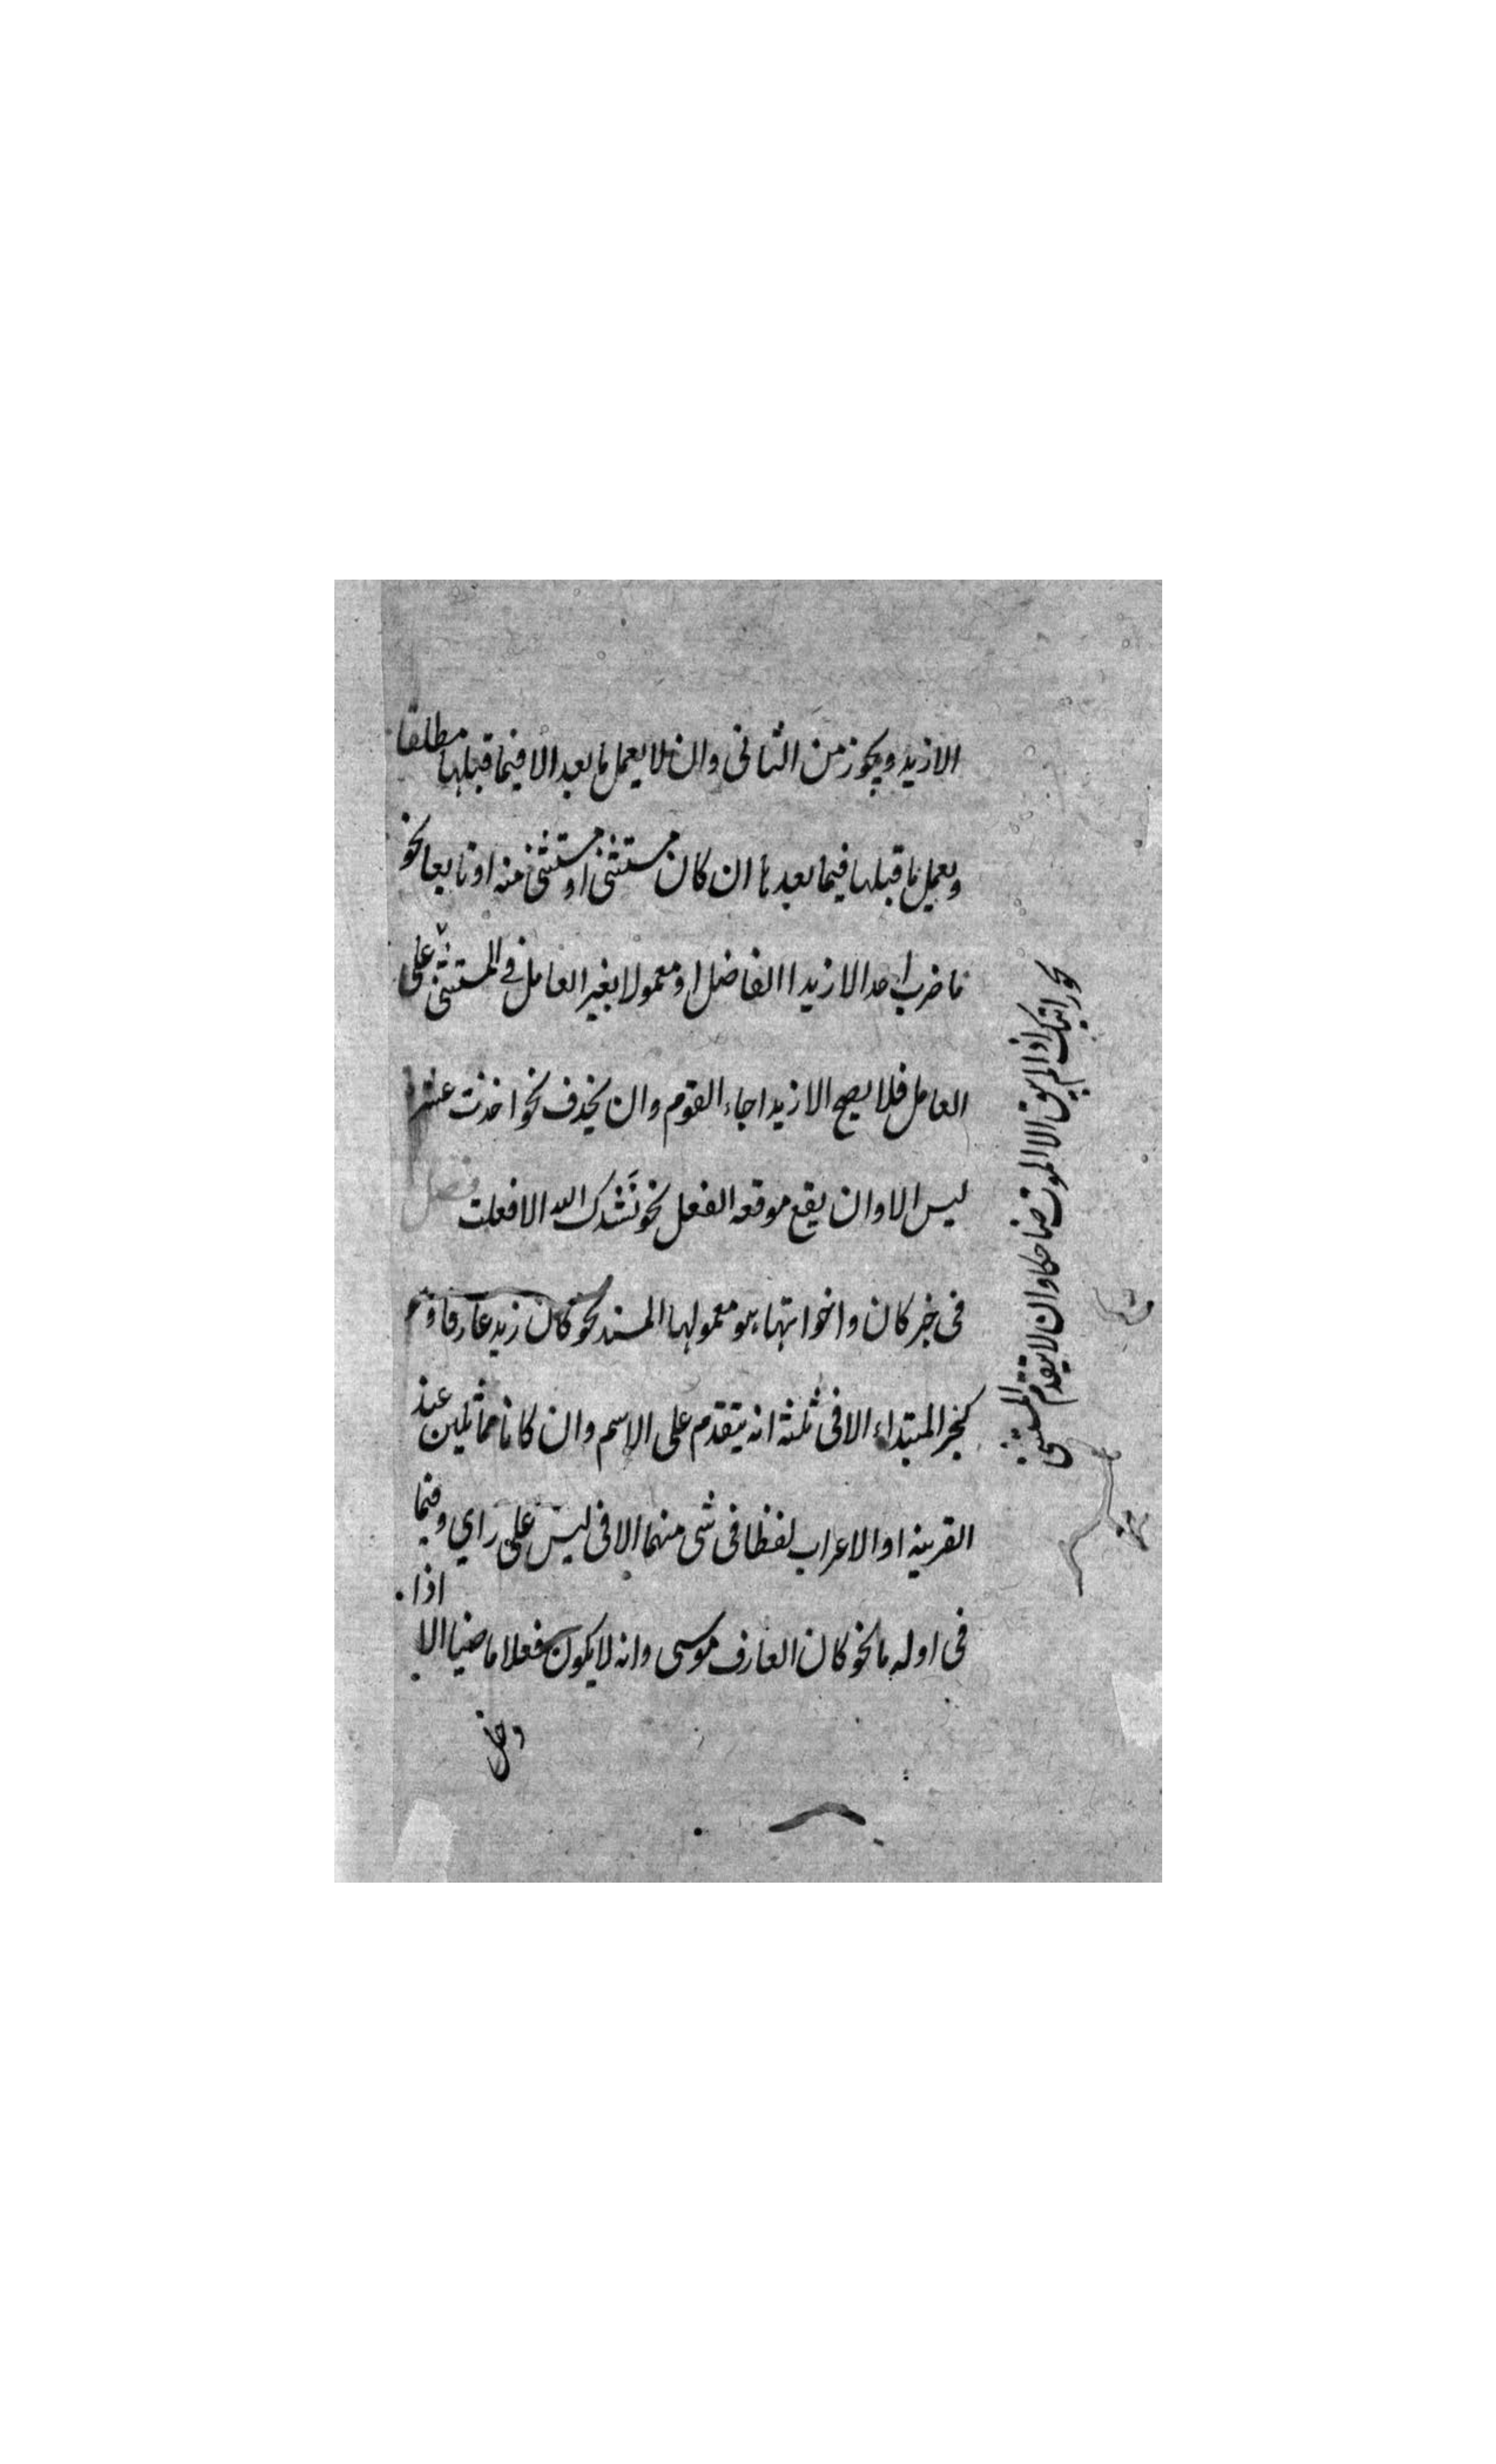 الا زيد ويجوز من الثانى وان لا يعمل ما بعد الا فيما قبلها مطلقا
ويعمل ما قبلها فيما بعدها ان كان مستثنى او مستثنى منه او تابعا نحو
ما ضرب احد الا زيدا الفاضل او معمولا بغير العامل فى المستثنى على
العامل فلا يصح الا زيدا جاء القوم وان يحذف نحو اخذت عشرا
ليس الا وان يقع موقعه الفعل نحو نَشدك الله الا فعلت
فصل
فى خبر كان واخواتها هو معمولها المسند نحو كان زيد عارفا و
كخبر المبتداء الا فى ثلثة انه يتقدم على الاسم وان كانا متماثلين عند
القرينة او الاعراب لفظا فى شى منهما الا فى ليس على راى وفيما
فى اوله ما نحو كان العارف موسى وانه لا يكون فعلا ماضيا الا
اذا
دخل
نحو راتبك اذا لم يبق الا الموت ضاحكا وان لا يتقدم المستثنى